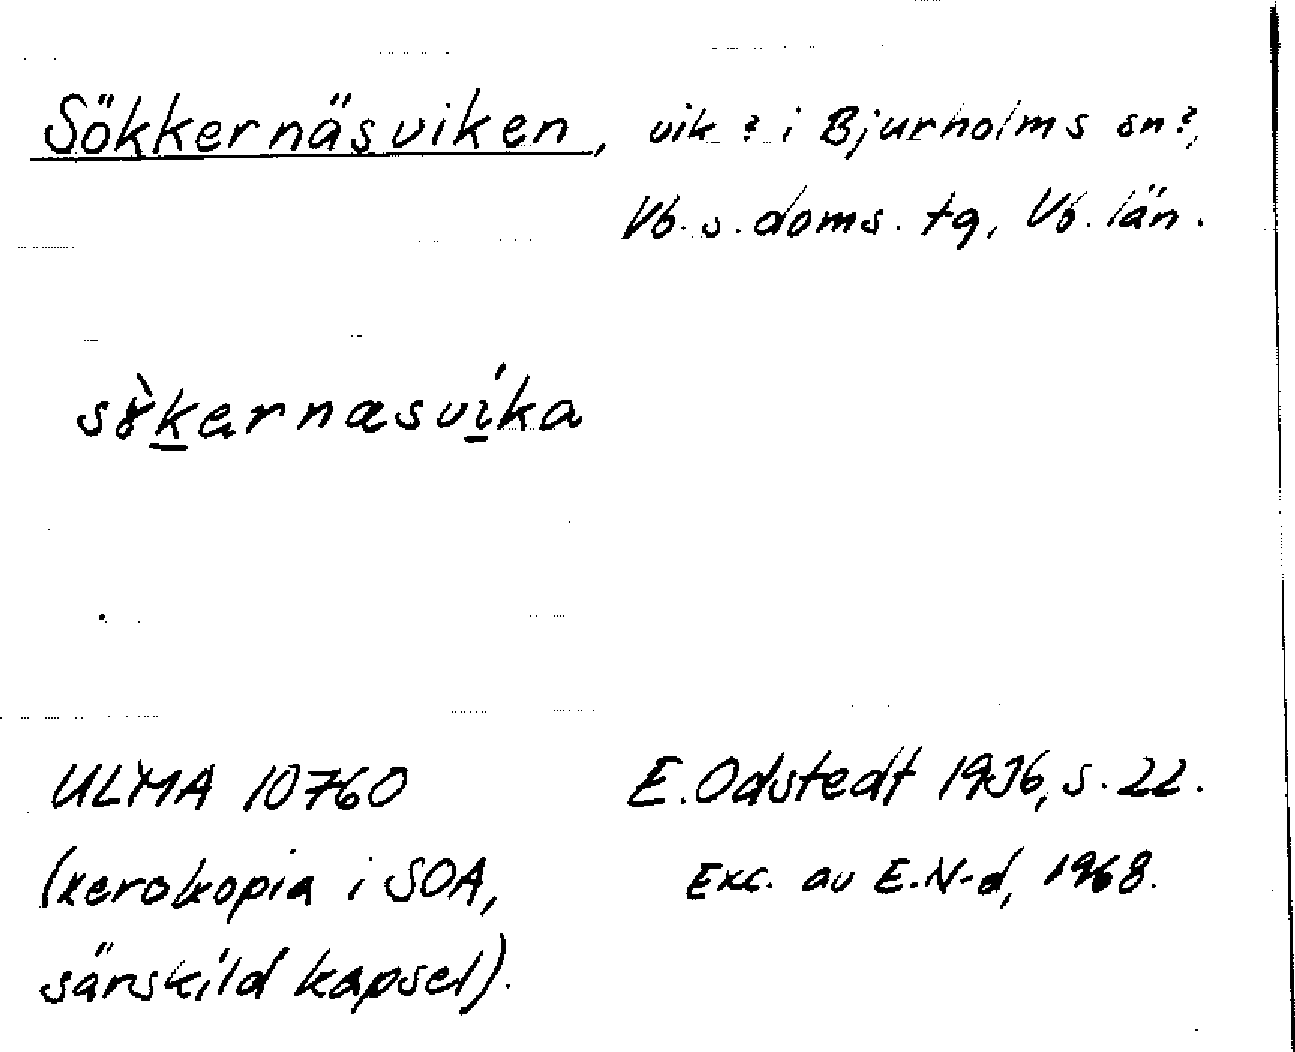 Sökkernäsviken, vik ? i Bjurholms sn?,
Vb. s. doms. tg, Vb. län.
sɤ̀k̲ernæsví̲ka
ULMA 10760
(xerokopia i SOA,
särskild kapsel).
E. Odstedt 1936, s. 22.
Exc. av E.N-d, 1968.